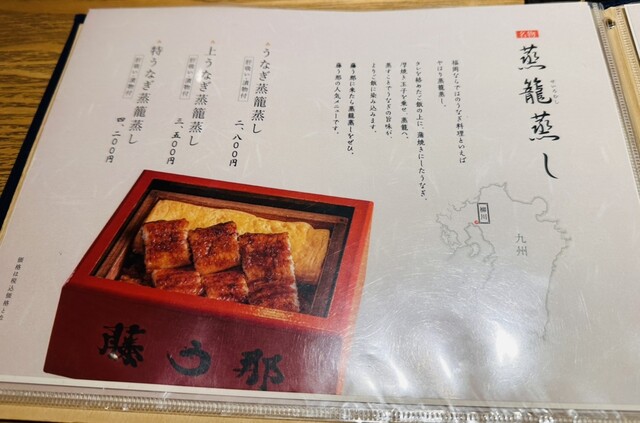 名物
せいろむし
蒸籠蒸し
福岡ならではのうなぎ料理といえば
やはり蒸籠蒸し。
タレを絡めたご飯の上に、蒲焼きにしたうなぎ、
厚焼き玉子を乗せ、蒸籠へ。
蒸すことでうなぎの旨味が、
よりご飯に染み込みます。
藤う那に来たら蒸籠蒸しをぜひ。
藤う那の人気メニューです。
うなぎ蒸籠蒸し
肝吸い・漬物付
二、八〇〇円
上うなぎ蒸籠蒸し
肝吸い・漬物付
三、五〇〇円
特うなぎ蒸籠蒸し
肝吸い・漬物付
四、二〇〇円
柳川
九州
藤う那
価格は税込価格とな